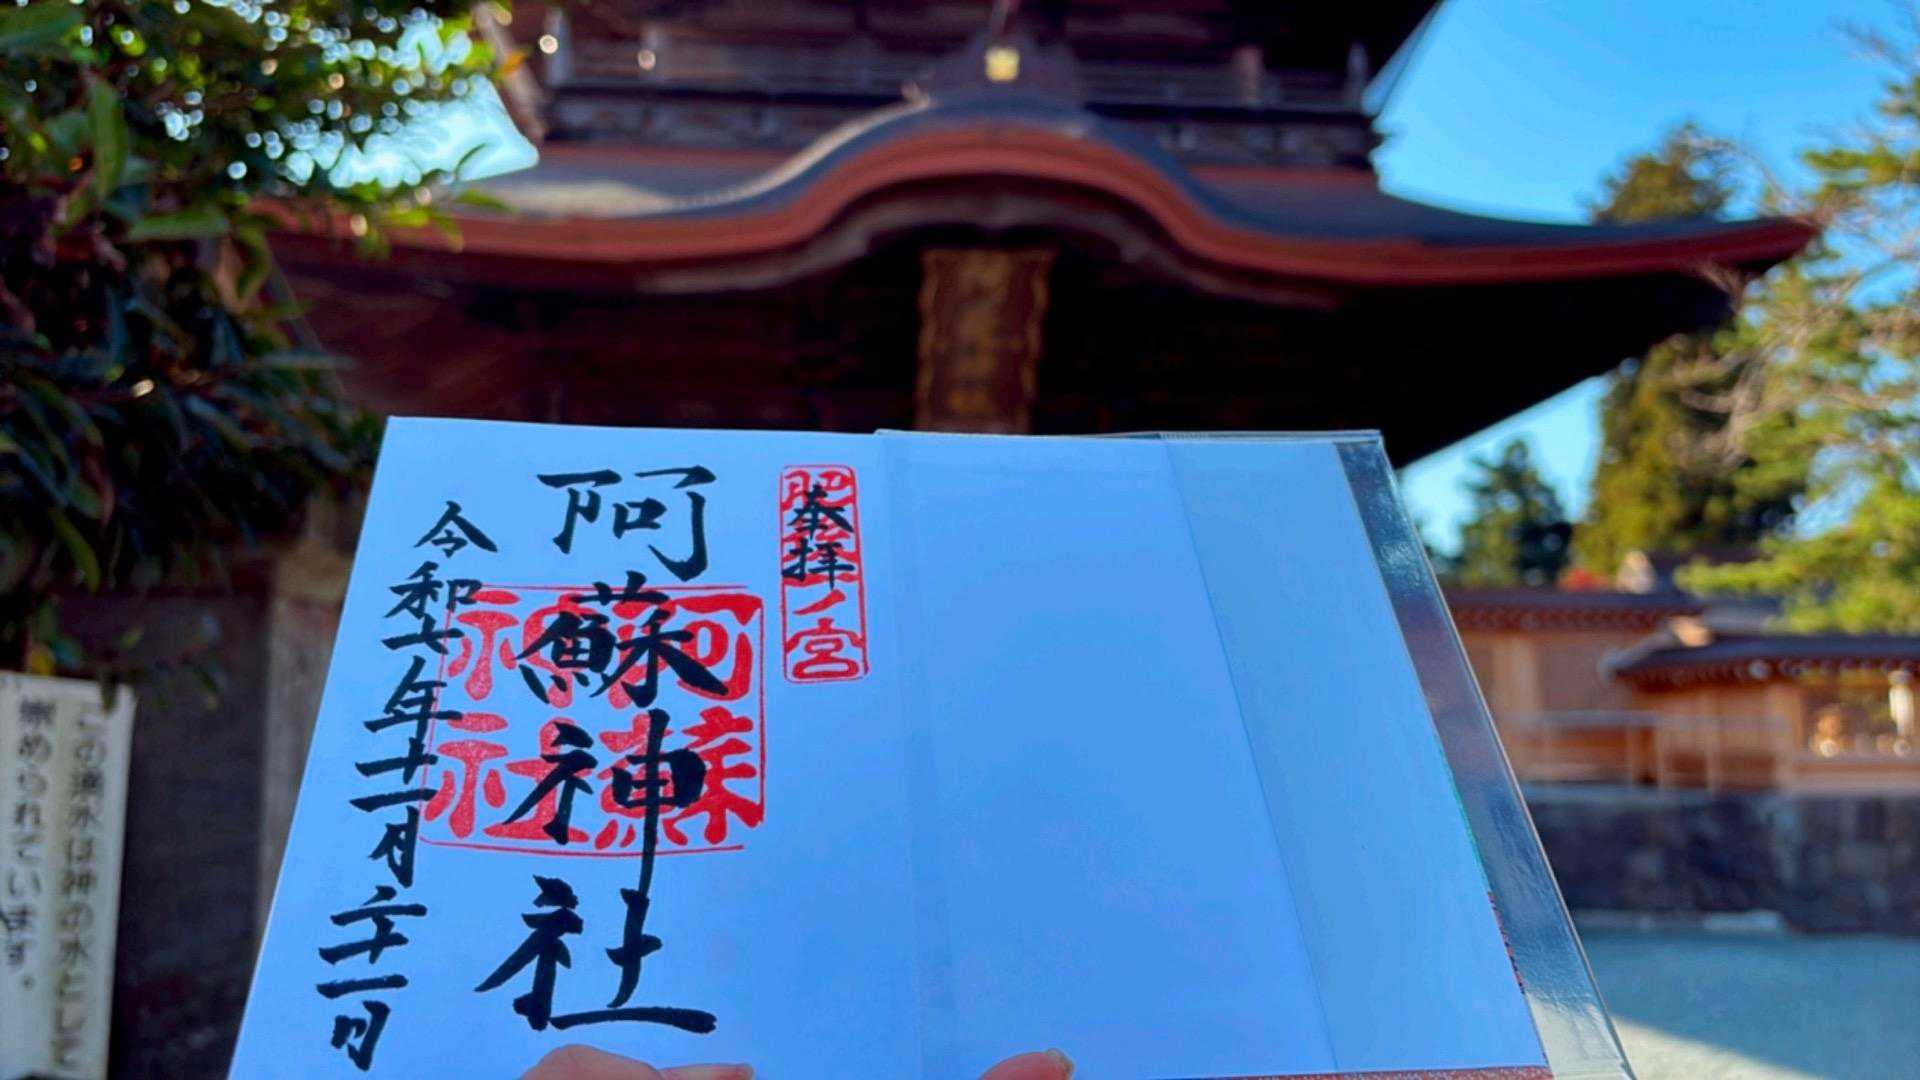 奉拝
肥後一ノ宮
阿蘇神社
阿蘇神社
令和七年十一月二十一日
この湧水は神の水として
崇められています。